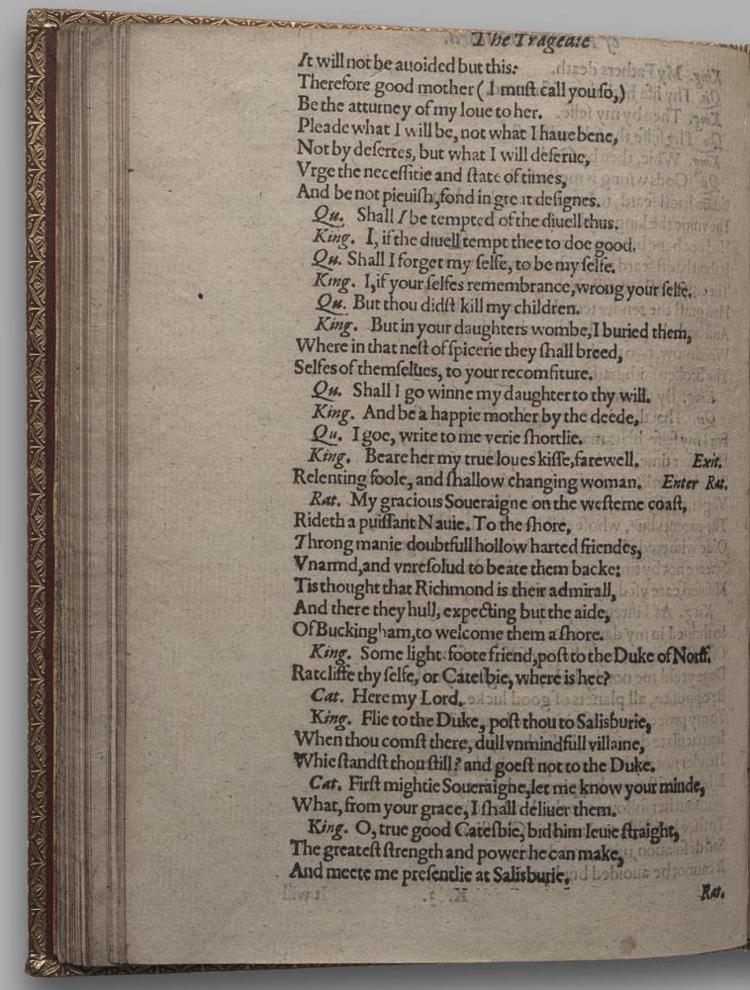 The Tragedie
It will not be auoided but this:
Therefore good mother (I must call you so,)
Be the atturney of my loue to her.
Pleade what I will be, not what I haue bene,
Not by desertes, but what I will deserue,
Vrge the necessitie and state of times,
And be not pieuish, fond in great designes.
Qu. Shall I be tempted of the diuell thus.
King. I, if the diuell tempt thee to doe good.
Qu. Shall I forget my selfe, to be my selfe.
King. I, if your selfes remembrance, wroug your selfe.
Qu. But thou didst kill my children.
King. But in your daughters wombe, I buried them,
Where in that nest of spicerie they shall breed,
Selfes of themselues, to your recomfiture.
Qu. Shall I go winne my daughter to thy will.
King. And be a happie mother by the deede,
Qu. I goe, write to me verie shortlie.
King. Beare her my true loues kisse, farewell. Exit.
Relenting foole, and shallow changing woman. Enter Rat.
Rat. My gracious Soueraigne on the westerne coast,
Rideth a puissant Nauie. To the shore,
Throng manie doubtfull hollow harted friendes,
Vnarmd, and vnresolud to beate them backe:
Tis thought that Richmond is their admirall,
And there they hull, expecting but the aide,
Of Buckingham, to welcome them a shore.
King. Some light foote friend, post to the Duke of Norff.
Ratcliffe thy selfe, or Catesbie, where is hee?
Cat. Here my Lord.
King. Flie to the Duke, post thou to Salisburie,
When thou comst there, dull vnmindfull villaine,
Whie standst thou still? and goest not to the Duke.
Cat. First mightie Soueraigne, let me know your minde,
What, from your grace, I shall deliuer them.
King. O, true good Catesbie, bid him leuie straight,
The greatest strength and power he can make,
And meete me presentlie at Salisburie.
Rat.